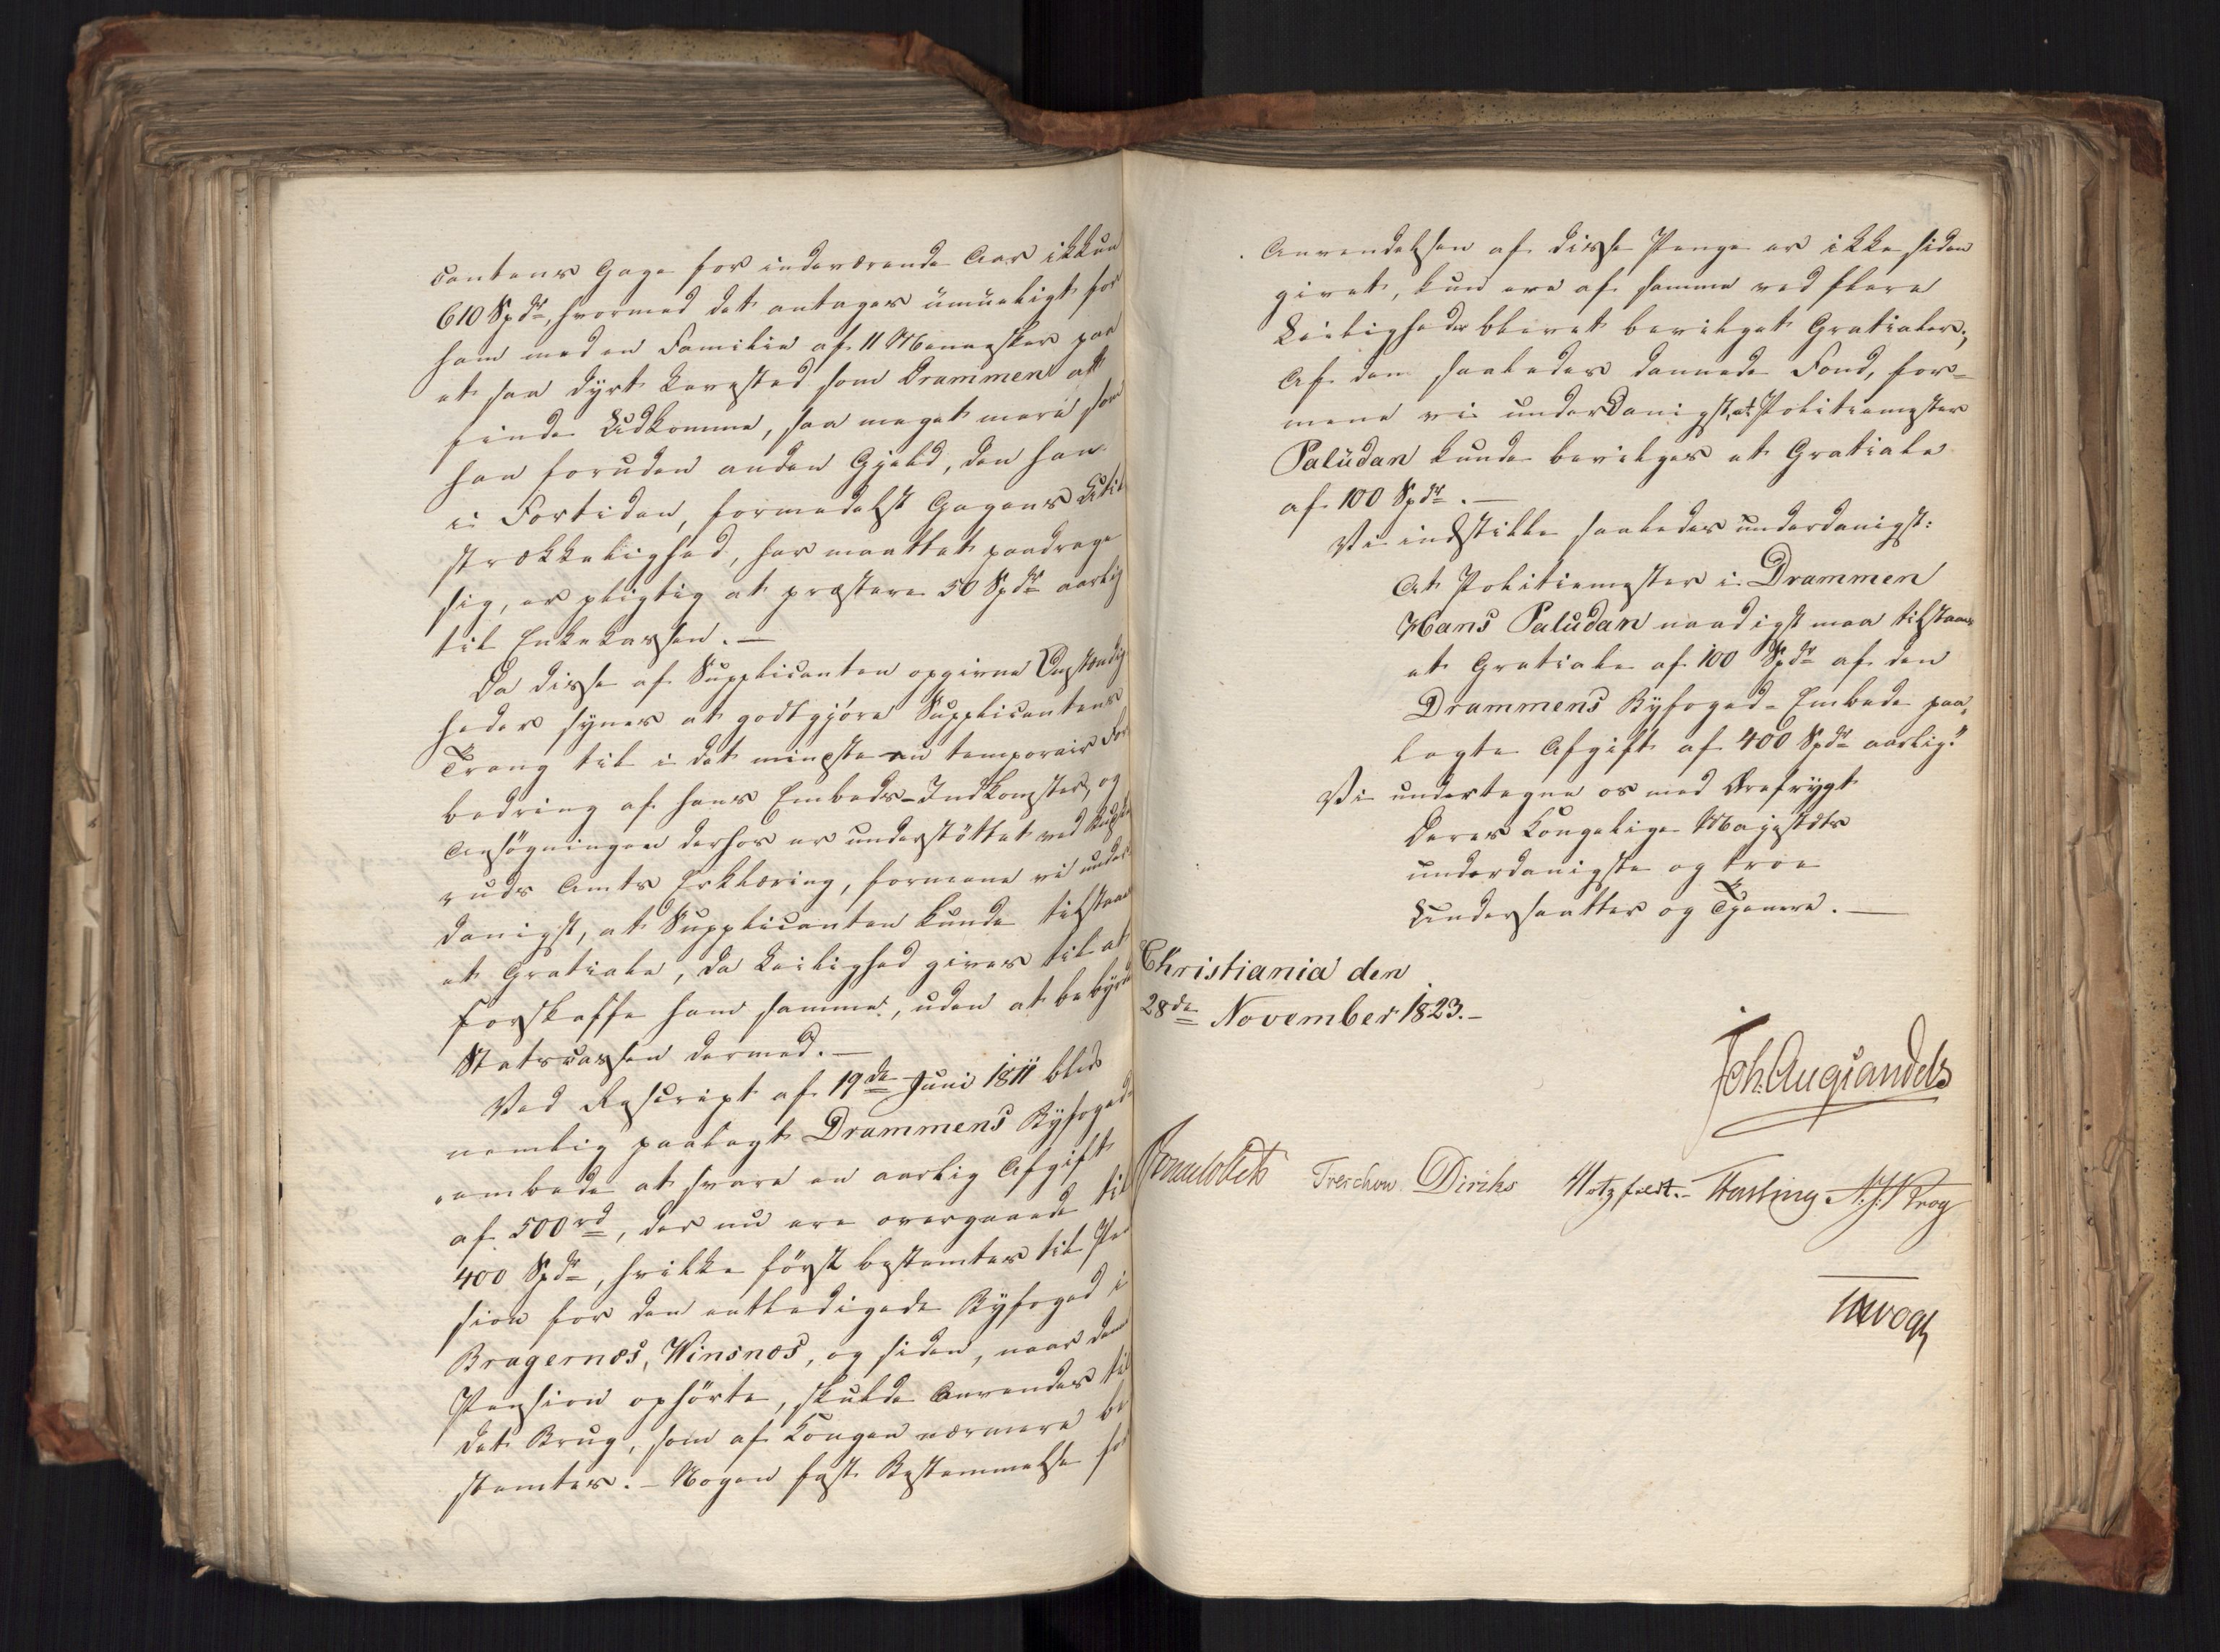 cantens Gage for indeværende Aar ikkun
610 Spdr, hvormed det antages umueligt for
ham med en Familie af 11 Mennesker paa
et saa dyrt Levested som Drammen at
finde Udkomme, saa meget mere som
han foruden anden Gjæld, den han
i Fortiden, formedelst Gagens Util
strækkelighed, har maattet paadrage
sig, er pligtig at præstere 50 Spdr aarlig
til Enkekassen. —
Da disse af Supplicanten opgivne Omstændig
heder synes at godtgjøre Supplicantens
Trang til i det mindste en temporair For
bedring af hans Embeds-Indkomster, og
Ansøgningen derhos er understøttet ved Buske
ruds Amts Erklæring, formene vi under
danigst, at Supplicanten kunde tilstaaes
et Gratiale, da Leilighed gives til at
forskaffe ham samme, uden at bebyrde
Statscassen dermed. —
Ved Rescript af 19de Juni 1811 blev
nemlig paalagt Drammens Byfoged-
embede at svare en aarlig Afgift
af 500 rd, der nu ere overgaaede til
400 Spdr, hvilke først bestemtes til Pen
sion for den entledigede Byfoged i
Bragernæs, Winsnæs, og siden, naar den
Pension ophørte, skulde anvendes til
det Brug, som af Kongen nærmere be
stemtes. – Nogen fast Bestemmelse for
Anvendelsen af disse Penge er ikke siden
givet, kun ere af samme ved flere
Leiligheder blevet bevilget Gratialer;
Af den saaledes dannede Fond, for=
mene vi underdanigst, at Politiemester
Palüdan kunde bevilges et Gratiale
af 100 Spdr. —
Vi indstille saaledes underdanigst:
At Politiemester i Drammen
Hans Paludan naadigst maa tilstaaes
et Gratiale af 100 Spdr af den
Drammens Byfoged-Embede paa,
lagte Afgift af 400 Spdr aarlig."
Vi undertegne os med Ærefrygt
Deres Kongelige Majestæts
underdanigste og troe
Undersaatter og Tjenere. —
Christiania den
28de November 1823. –
Joh. Aug. Sandels
Sommerfeldt Treschow. Diriks Motzfeldt. – Fasting N. J. Krog
Vogt